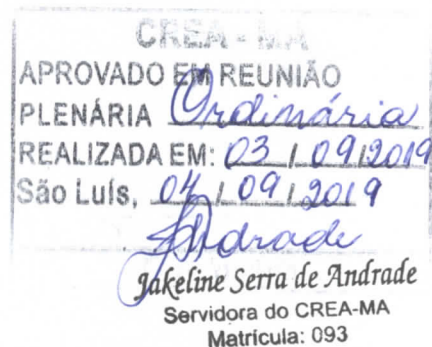 CREA - MA
APROVADO EM REUNIÃO
PLENÁRIA Ordinária
REALIZADA EM: 03 / 09 / 2019
São Luís, 04 / 09 / 2019
Andrade
Jakeline Serra de Andrade
Servidora do CREA-MA
Matrícula: 093